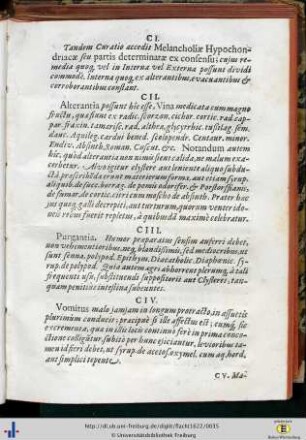 CI.
Tandem Curatio accedit Melancholiæ Hypochon-
driacæ seu partis determinatæ ex consensu; cujus re-
media quoq, vel in Interna vel Externa possunt dividi
commodè. Interna quoq, ex alterantibus, evacuantibus &
corroborantibus constant.
CII.
Alterantia possunt hic esse, Vina medicata cum magno
fructu, quæ fiunt ex radic. scorzon. cichor. cortic. rad. cap-
par. fraxin. tamarisc. rad. althæ, glycyrrhiz. tussilag. sem.
dauc. Aquileg. cardui bened. scolopendr. Centaur. minor.
Endiv. Absinth. Roman. Cuscut. &c. Notandum autem
hic, quòd alterantia non nimis sient calida, ne malum exa-
cerbetur.
ductâ
aliquib. de succ. borrag. de pomis odorifer. &
de fumar. de cortic. citri cum moscho de absinth. Præter hæc
jus quoq, galli decrepiti, aut turturum, quorum venter ido-
neis rebus fuerit repletus, à quibusdã maximè celebratur.
CIII.
Purgantia. Humor præparatus sensim auferri debet,
non vehementioribus, neq, blandissimis, sed mediocribus, ut
sunt senna, polypod. Epithym. Diacatholic. Diaphœnic. syr-
up. de polypod. Quia autem ægri abhorrent plerunq, à tali
frequenti usu, substituendi suppositorii aut Clysteres, tan-
quam penitius intestina subeuntes.
CIV.
Vomitus malo jam jam in longum protracto, in assuetis
plurimùm conducit; præcipuè si ille affectus est; cumq, sic
excrementa, quæ in illis locis continuò ferè in prima conco-
ctione colligitur, subitò per hunc ejiciantur, levioribus ta-
men id fieri debet, ut syrup. de acetos. oxymel. cum aq. hord.
aut simplici tepente.
CV. Ma-
http://dl.ub.uni-freiburg.de/diglit/flach1622/0035
© Universitätsbibliothek Freiburg